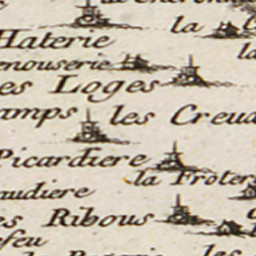 la
Haterie
la
mouserie
es Loges
amps les Creua
Picardiere
la Froter
audiere
es Ribous
feu
les